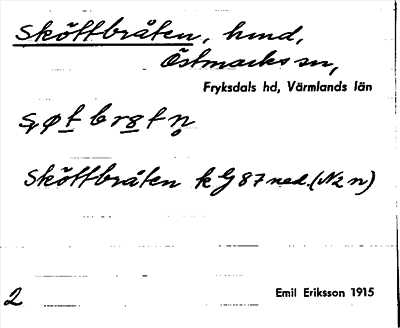 Sköttbråten, hmd,
Östmarks sn,
Fryksdals hd, Värmlands län
Sköttbråten k G 87 ned. (N2n)
2
Emil Eriksson 1915